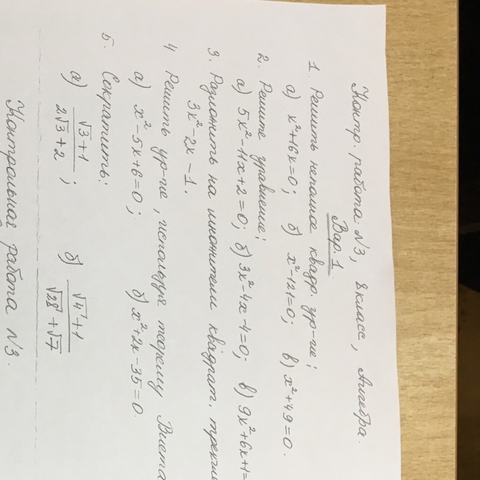 Контр. работа N3, 8 класс, Алгебра.
Вар. 1
1. Решить неполное квадр. ур-ие:
а) x²+16x=0; б) x²-121=0; в) x²+49=0.
2. Решите уравнение:
а) 5x²-11x+2=0; б) 3x²-4x-4=0; в) 9x²+6x+1=
3. Разложить на множители квадрат. трехчл
3x²-2x-1.
4 Решить ур-ие, используя теорему Виета
а) x²-5x+6=0; б) x²+2x-35=0
5. Сократить:
а) (√3+1)/(2√3+2); б) (√4+1)/(√28+√7)
Контрольная работа N3.